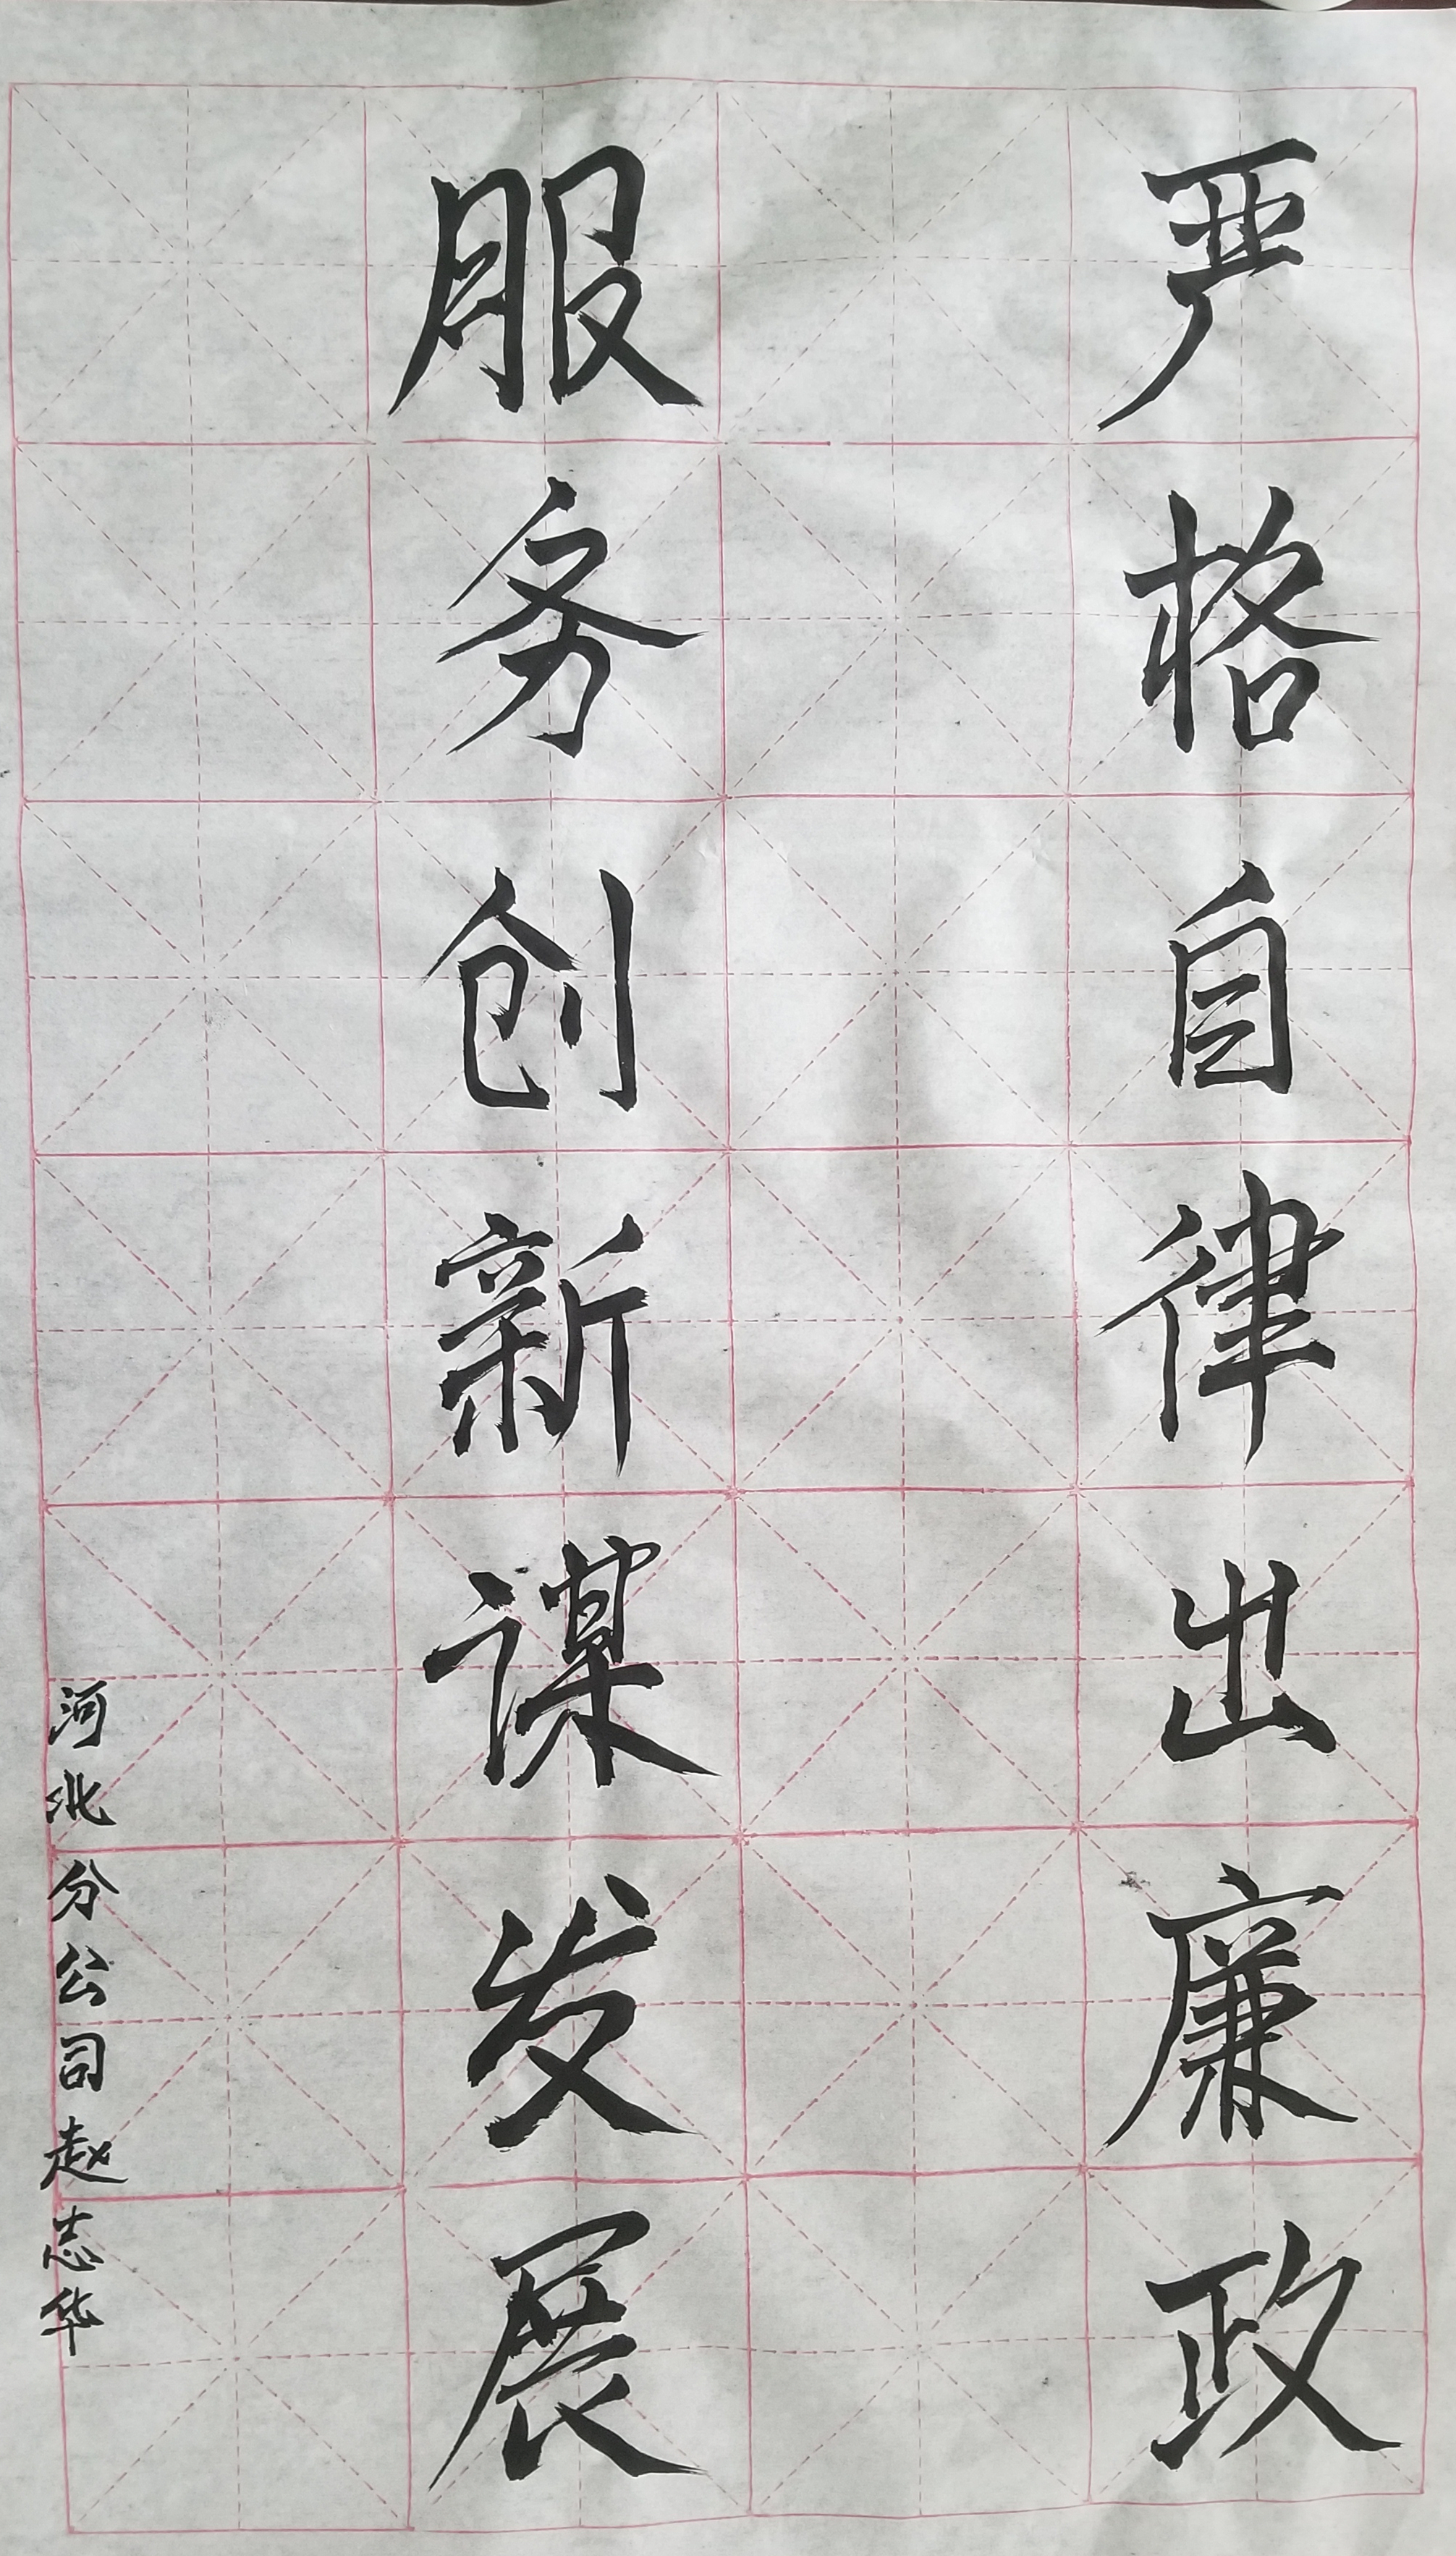 严格自律出廉政
服务创新谋发展
河北分公司赵志华